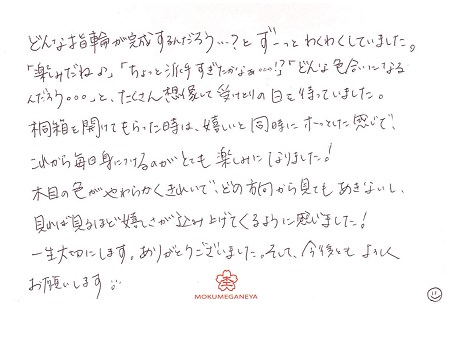 どんな指輪が完成するんだろう…？と ずーっとわくわくしていました。
「楽しみだね♪」「ちょっと派手すぎたかなぁ…!?」「どんな色合いになる
んだろう。。。」と、たくさん想像して受けとりの日を待っていました。
桐箱を開けてもらった時は、嬉しいと同時にホッとした感じで、
これから毎日身につけるのがとても楽しみになりました！
木目の色がやわらかくきれいで、どの方向から見てもあきないし、
見れば見るほど嬉しさが込み上げてくるように感じました！
一生大切にします。ありがとうございました。そして、今後ともよろしく
お願いします
MOKUMEGANEYA